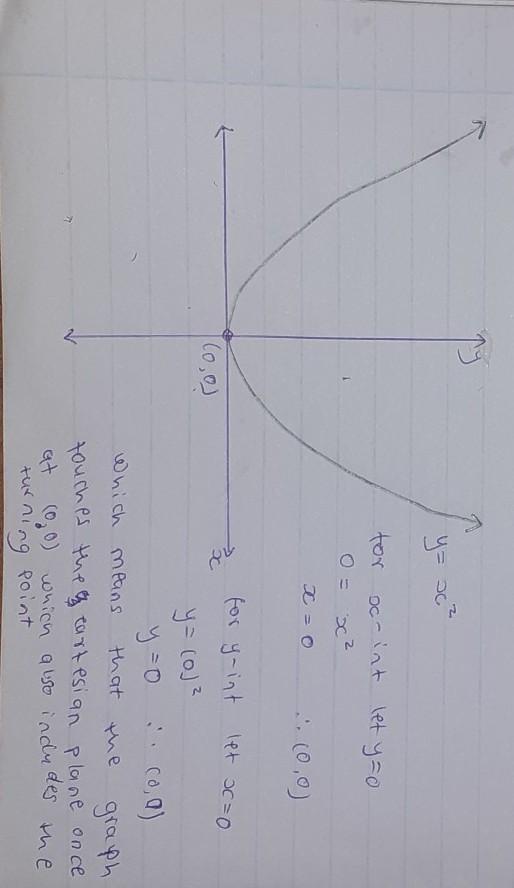 y
(0,0)
x
y = x²
for x-int let y=0
0 = x²
x = 0 ∴ (0,0)
for y-int let x=0
y = (0)²
y = 0 ∴ (0,0)
which means that the graph
touches the cartesian plane once
at (0,0) which also includes the
turning point